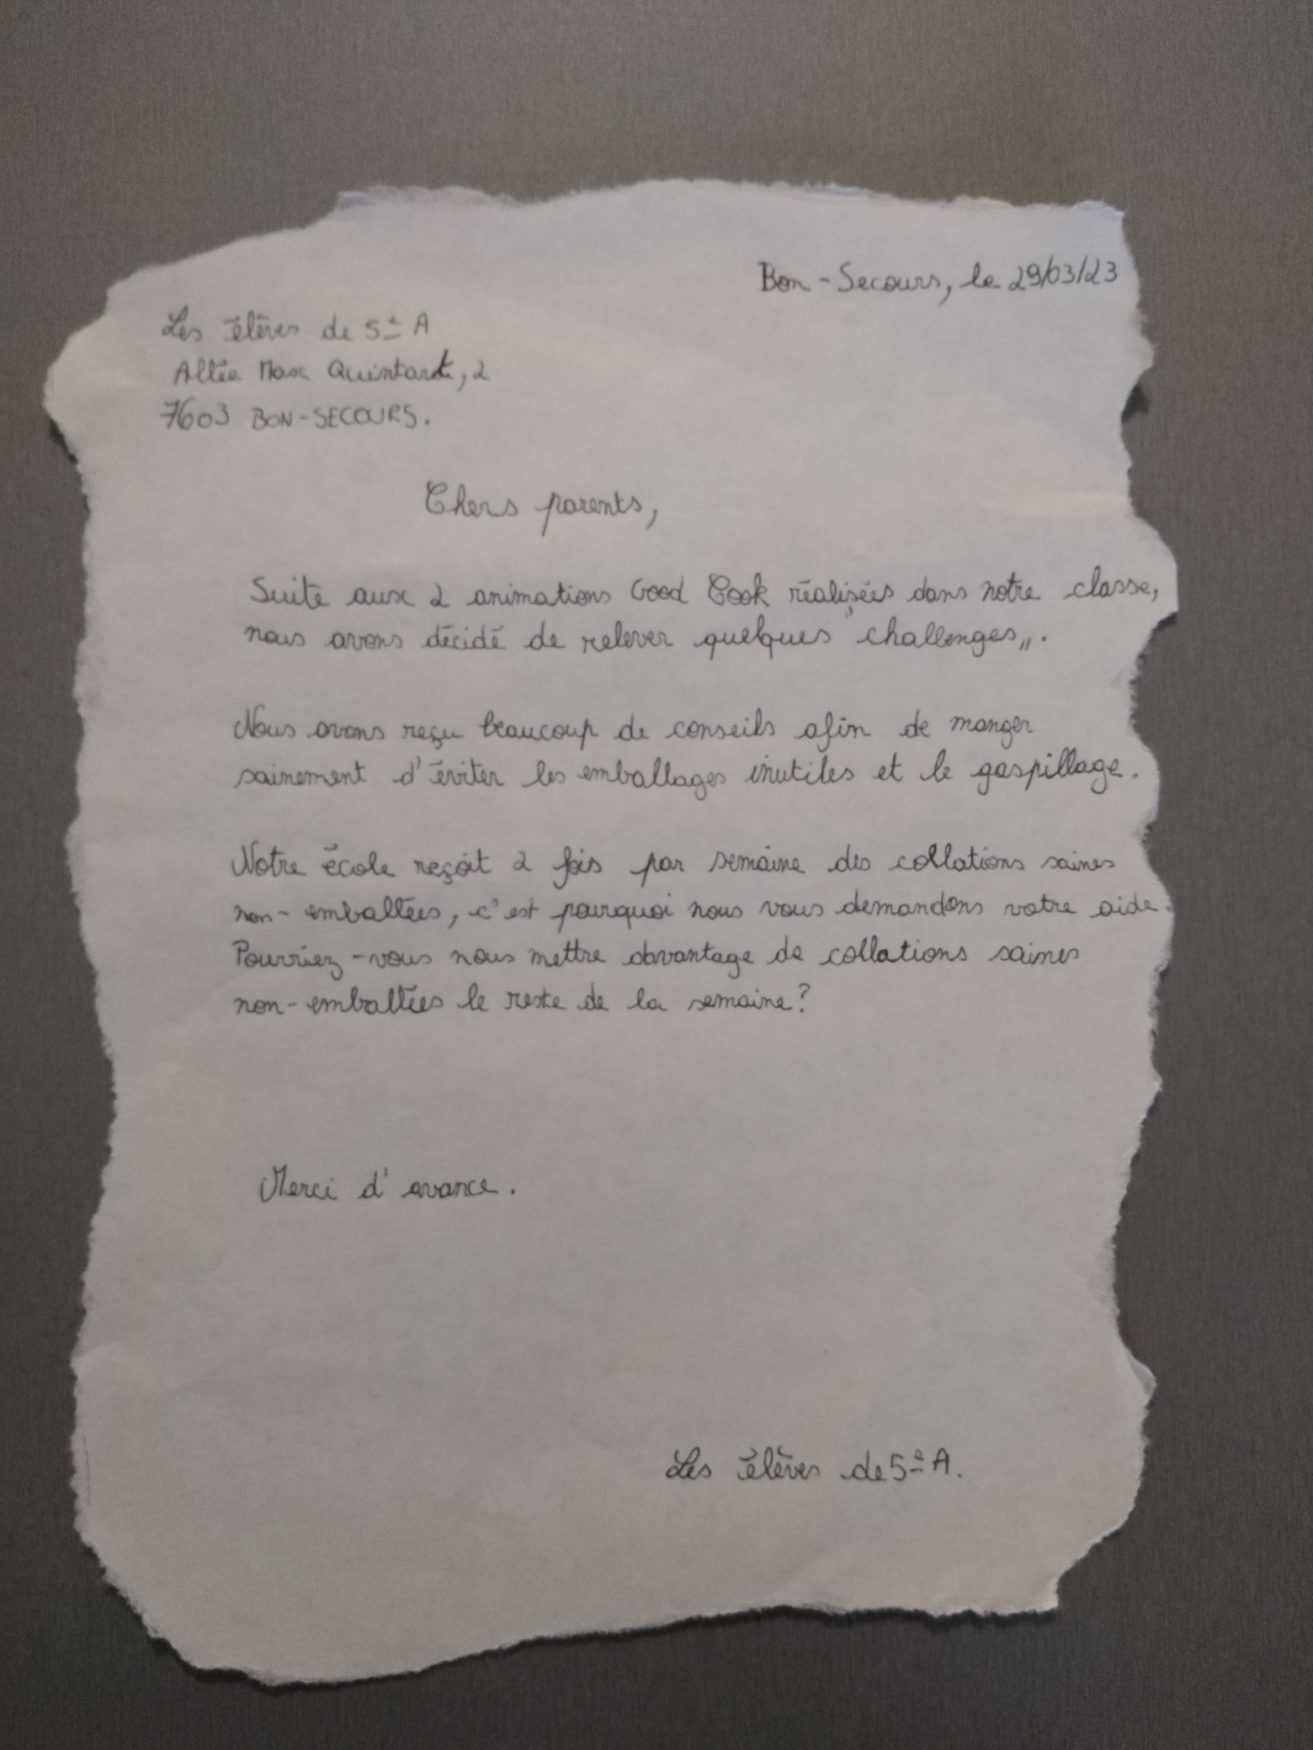 Bon-Secours, le 29/03/23
Les élèves de 5e A
Allée Max Quintart, 2
7603 BON-SECOURS.
Chers parents,
Suite aux 2 animations Good Cook réalisées dans notre classe,
nous avons décidé de relever quelques "challenges".
Nous avons reçu beaucoup de conseils afin de manger
sainement d'éviter les emballages inutiles et le gaspillage.
Notre école reçoit 2 fois par semaine des collations saines
non-emballées, c'est pourquoi nous vous demandons votre aide.
Pourriez-vous nous mettre davantage de collations saines
non-emballées le reste de la semaine?
Merci d'avance.
Les élèves de 5e A.